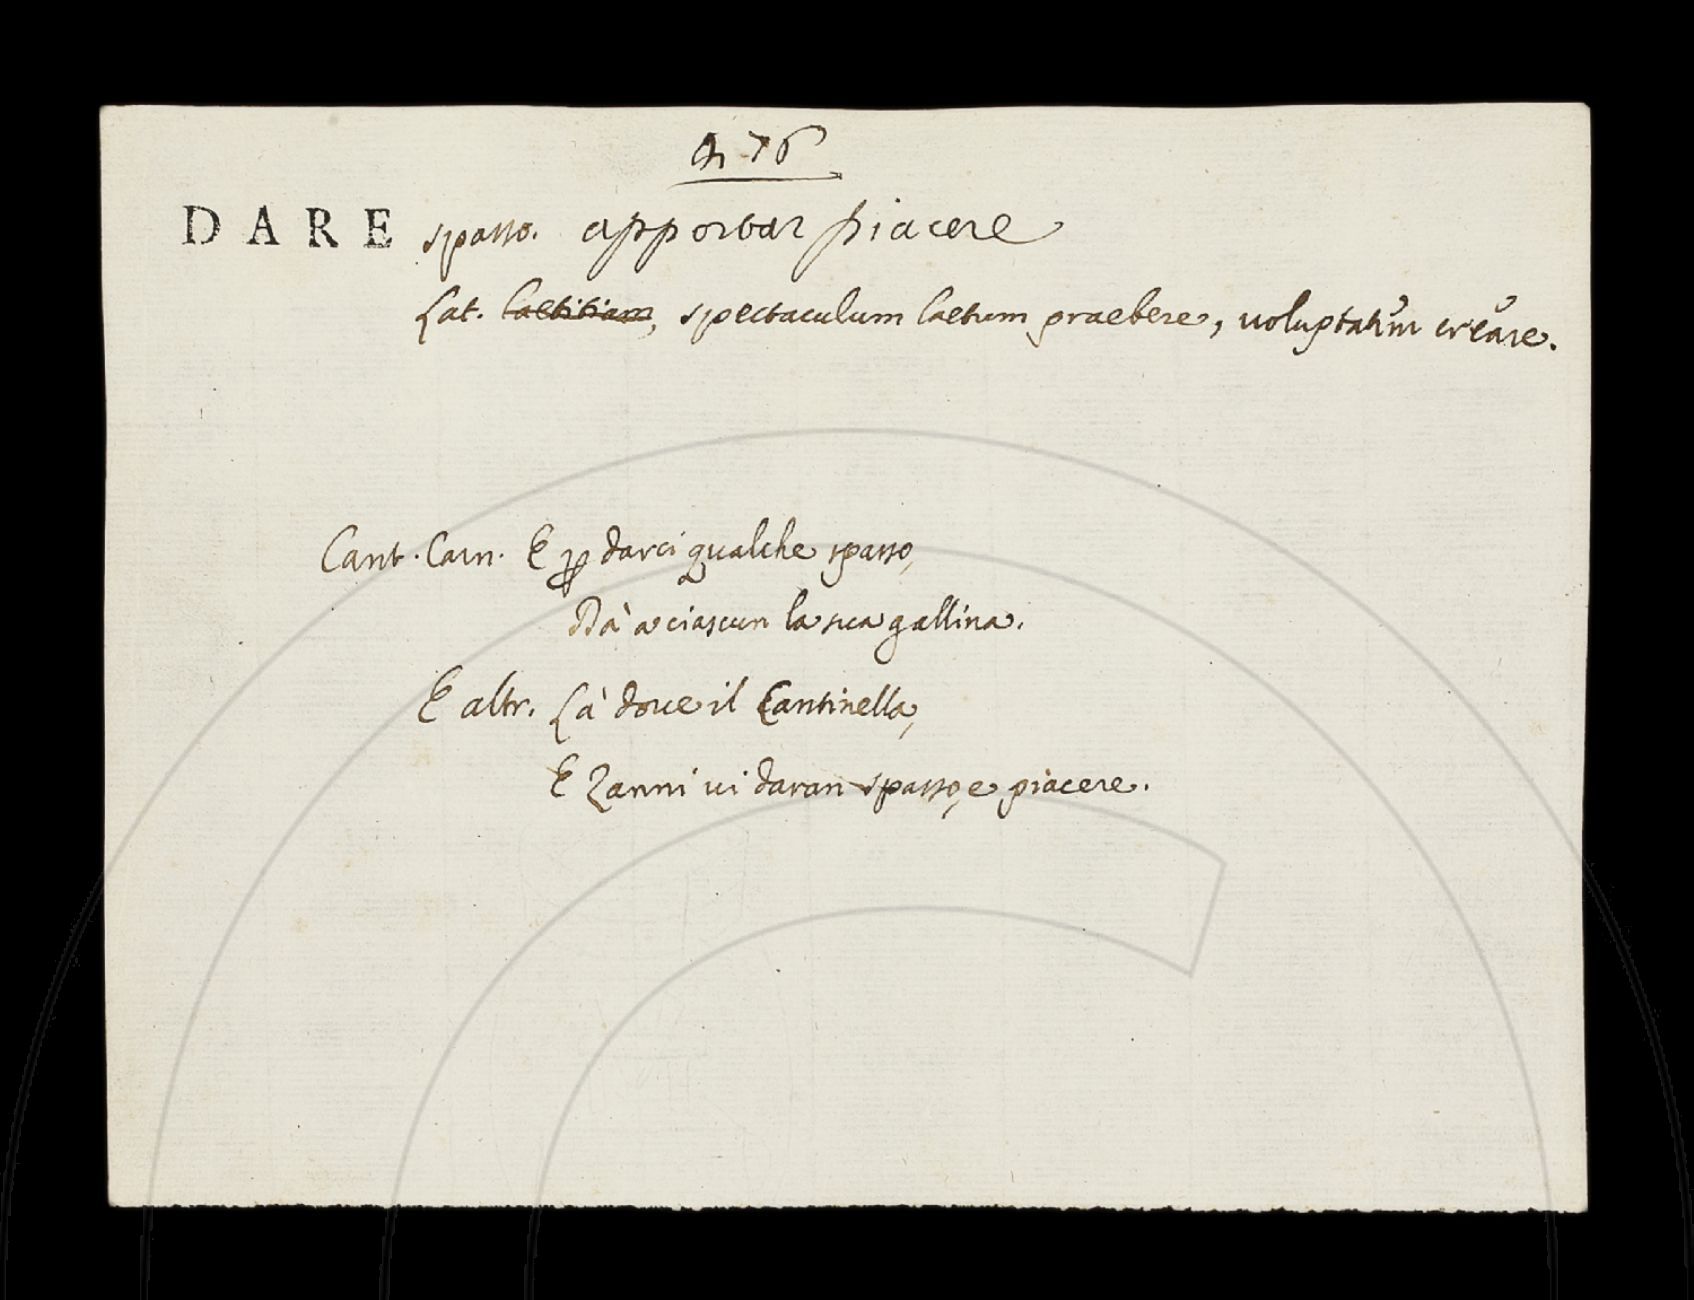 476
DARE spasso. apportar piacere
Lat. laetitiam, spectaculum laetum praebere, voluptatum creare.
Cant. Carn. E p darci qualche spasso,
Dà a ciascun la sua gallina.
E altr. Là dove il Cantinella,
E Zanni vi daran spasso, e piacere.